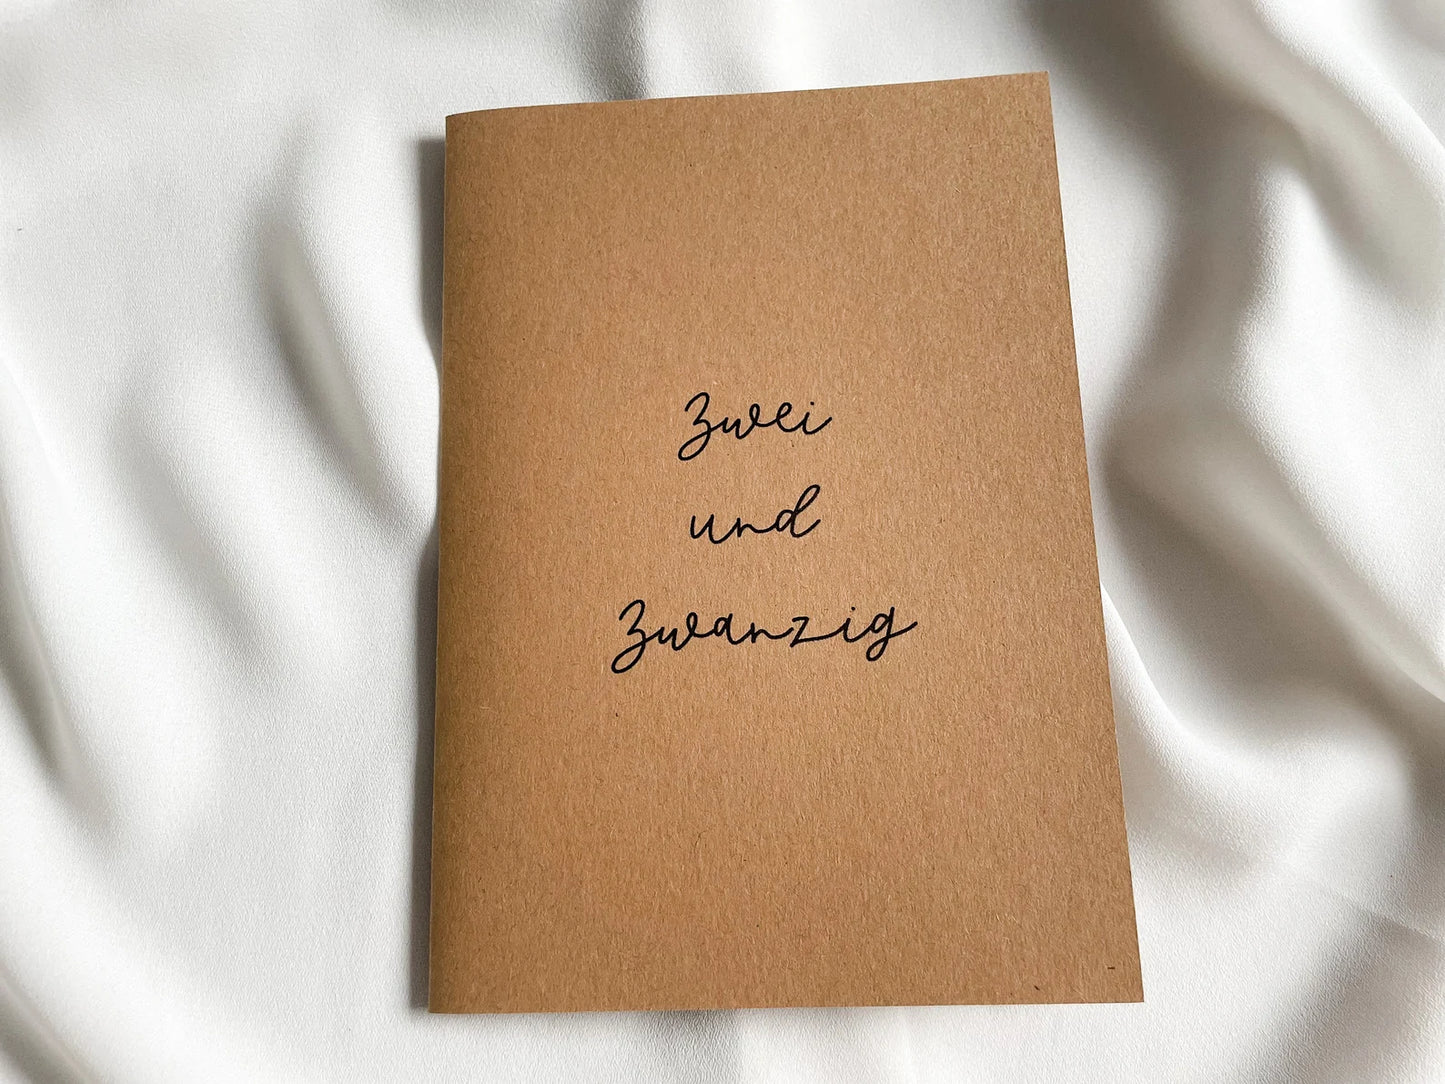 Zwei
und
Zwanzig